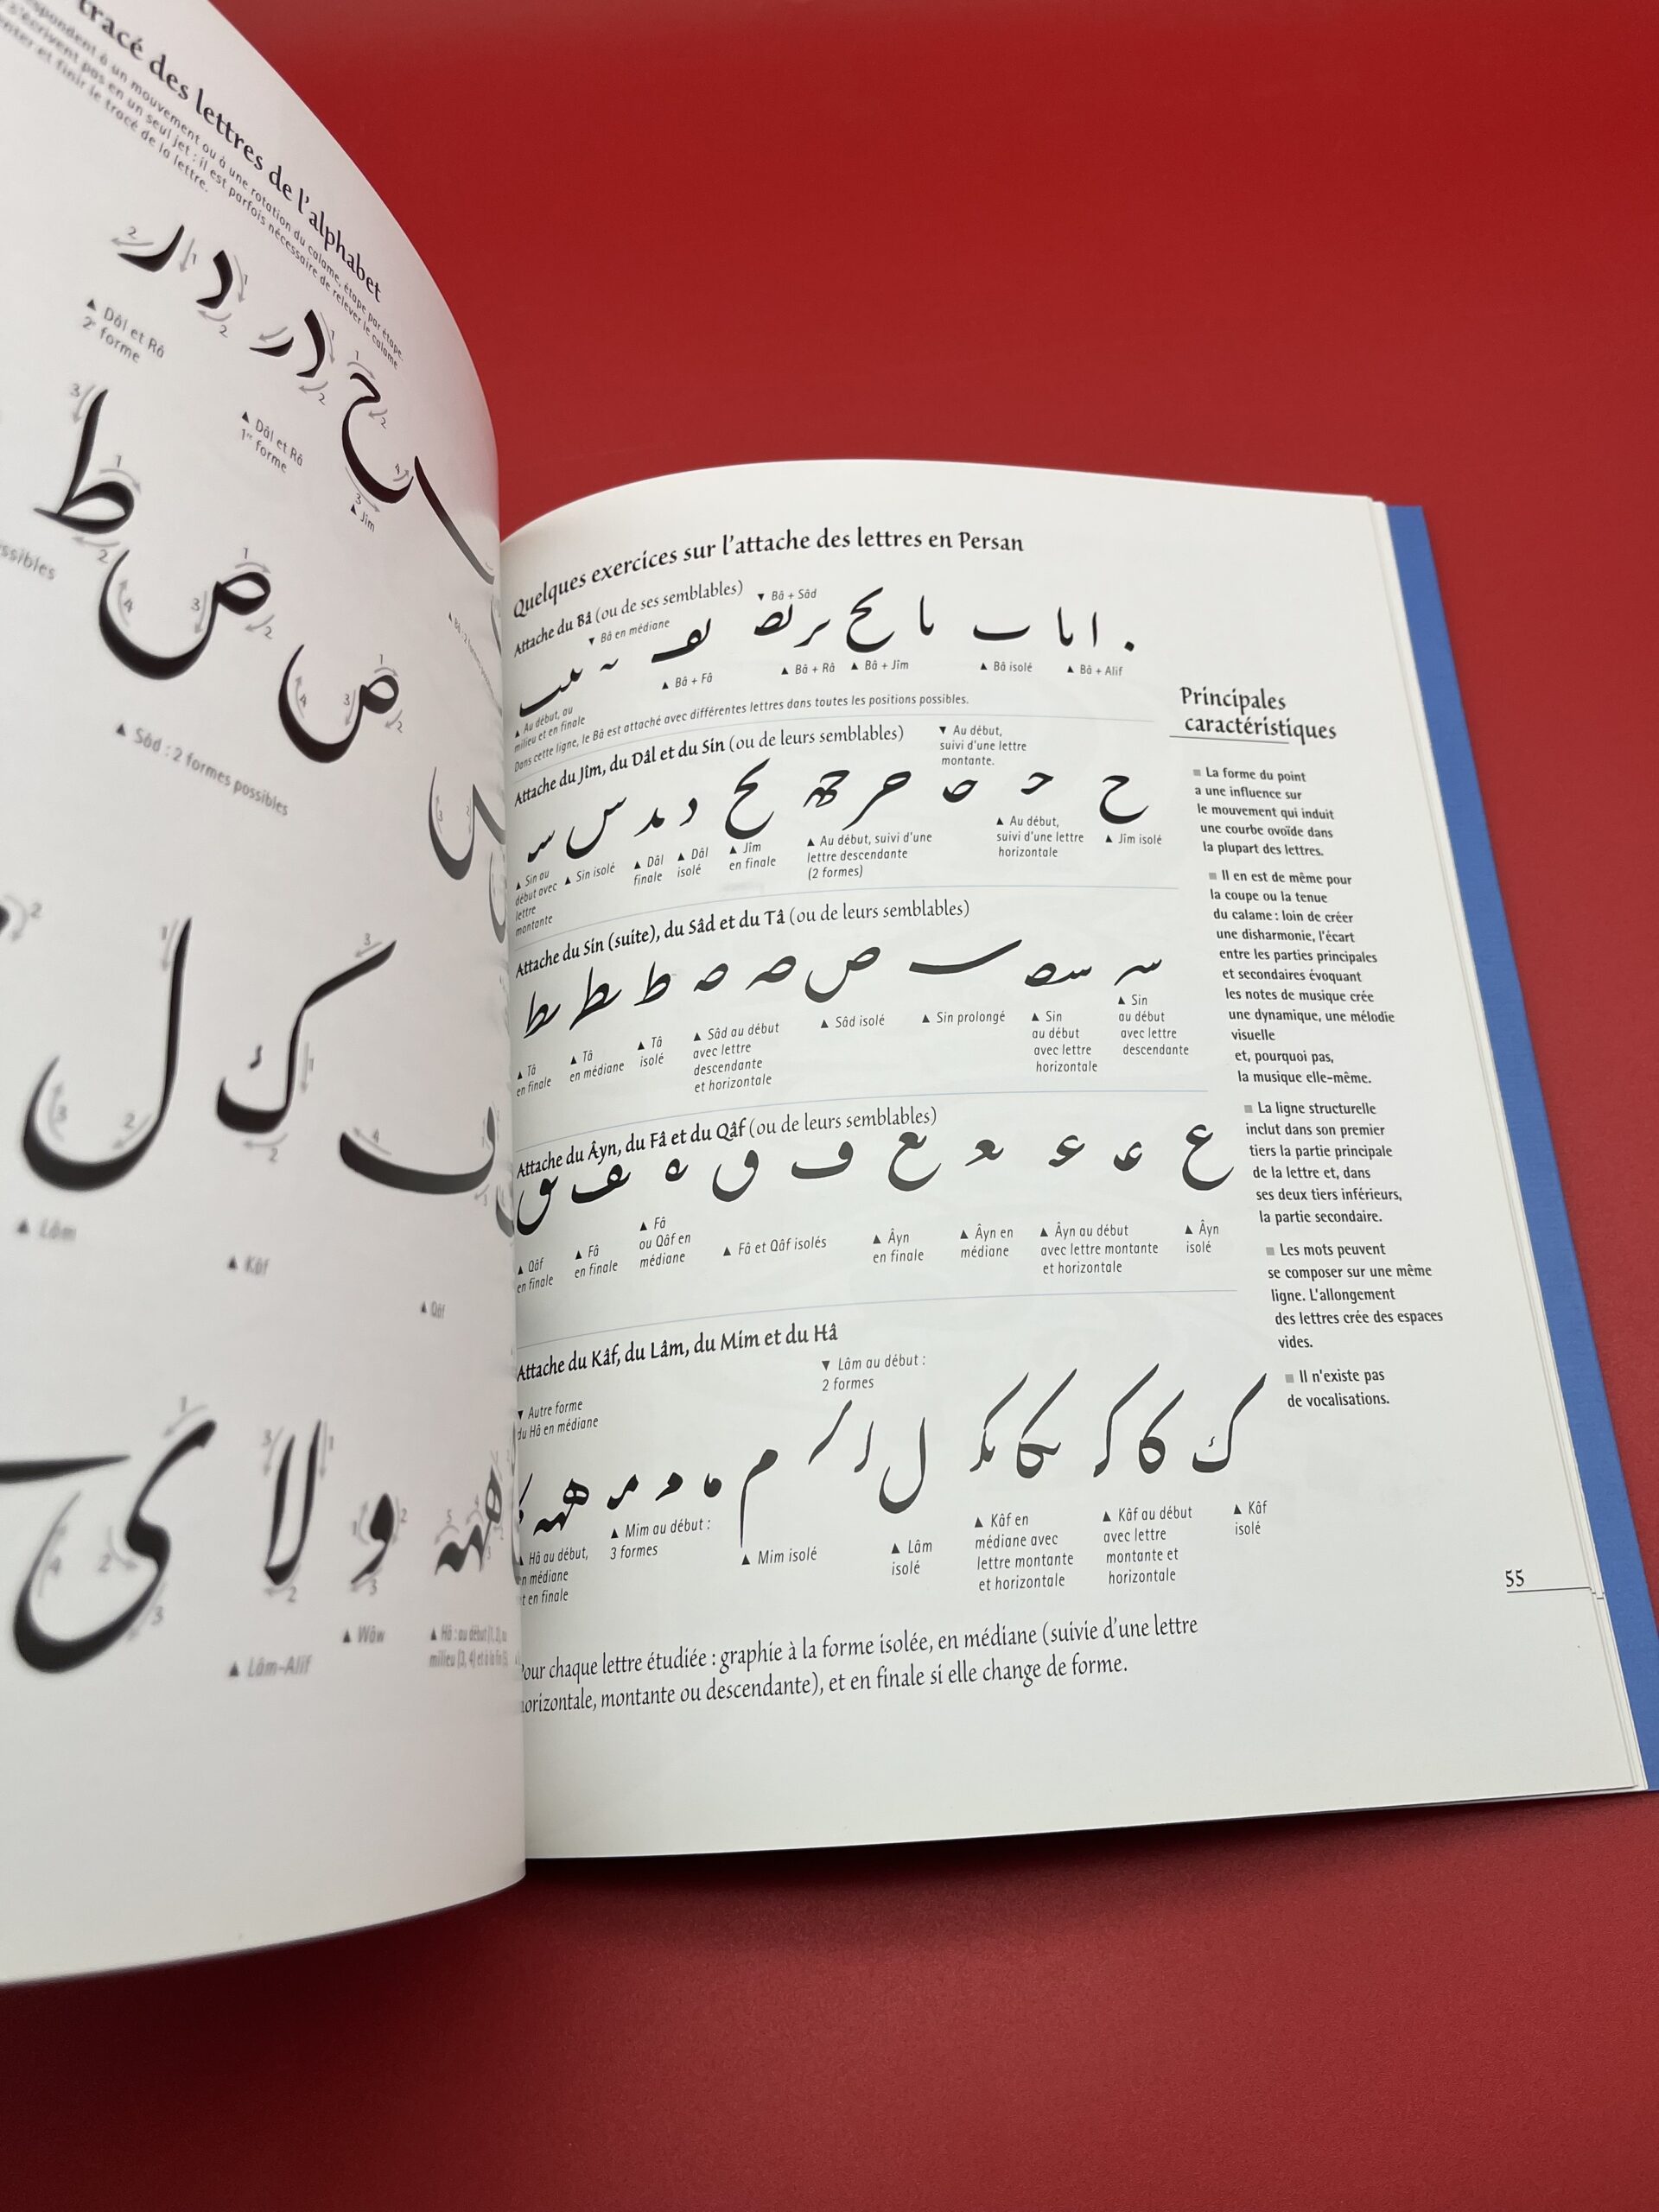 tracé des lettres de l'alphabet
pondent à un mouvement ou à une rotation du calame, étape par étape.
s'écrivent pas en un seul jet : il est parfois nécessaire de relever le calame
et finir le tracé de la lettre.
▲ Dâl et Râ
2e forme
▲ Dâl et Râ
1re forme
▲ Jîm
▲ Sâd : 2 formes possibles
▲ Lâm
▲ Kâf
▲ Qâf
▲ Lâm-Alif
▲ Wâw
▲ Hâ : au début (1, 2), au
milieu (3, 4) et à la fin (5)
Quelques exercices sur l'attache des lettres en Persan
Attache du Bâ (ou de ses semblables)
▼ Bâ + Sâd
▼ Bâ en médiane
▲ Au début, au
milieu et en finale
▲ Bâ + Fâ
▲ Bâ + Râ
▲ Bâ + Jîm
▲ Bâ isolé
▲ Bâ + Alif
Dans cette ligne, le Bâ est attaché avec différentes lettres dans toutes les positions possibles.
Attache du Jîm, du Dâl et du Sin (ou de leurs semblables)
▼ Au début,
suivi d'une lettre
montante.
▲ Sin au
début avec
lettre
montante
▲ Sin isolé
▲ Dâl
finale
▲ Dâl
isolé
▲ Jîm
en finale
▲ Au début, suivi d'une
lettre descendante
(2 formes)
▲ Au début,
suivi d'une lettre
horizontale
▲ Jîm isolé
Attache du Sin (suite), du Sâd et du Tâ (ou de leurs semblables)
▲ Tâ
en finale
▲ Tâ
en médiane
▲ Tâ
isolé
▲ Sâd au début
avec lettre
descendante
et horizontale
▲ Sâd isolé
▲ Sin prolongé
▲ Sin
au début
avec lettre
horizontale
▲ Sin
au début
avec lettre
descendante
Attache du Âyn, du Fâ et du Qâf (ou de leurs semblables)
▲ Qâf
en finale
▲ Fâ
en finale
▲ Fâ
ou Qâf en
médiane
▲ Fâ et Qâf isolés
▲ Âyn
en finale
▲ Âyn en
médiane
▲ Âyn au début
avec lettre montante
et horizontale
▲ Âyn
isolé
Attache du Kâf, du Lâm, du Mim et du Hâ
▼ Autre forme
du Hâ en médiane
▼ Lâm au début :
2 formes
▲ Hâ au début,
en médiane
et en finale
▲ Mim au début :
3 formes
▲ Mim isolé
▲ Lâm
isolé
▲ Kâf en
médiane avec
lettre montante
et horizontale
▲ Kâf au début
avec lettre
montante et
horizontale
▲ Kâf
isolé
Pour chaque lettre étudiée : graphie à la forme isolée, en médiane (suivie d'une lettre
horizontale, montante ou descendante), et en finale si elle change de forme.
Principales
caractéristiques
La forme du point
a une influence sur
le mouvement qui induit
une courbe ovoïde dans
la plupart des lettres.
Il en est de même pour
la coupe ou la tenue
du calame : loin de créer
une disharmonie, l'écart
entre les parties principales
et secondaires évoquant
les notes de musique crée
une dynamique, une mélodie
visuelle
et, pourquoi pas,
la musique elle-même.
La ligne structurelle
inclut dans son premier
tiers la partie principale
de la lettre et, dans
ses deux tiers inférieurs,
la partie secondaire.
Les mots peuvent
se composer sur une même
ligne. L'allongement
des lettres crée des espaces
vides.
Il n'existe pas
de vocalisations.
55